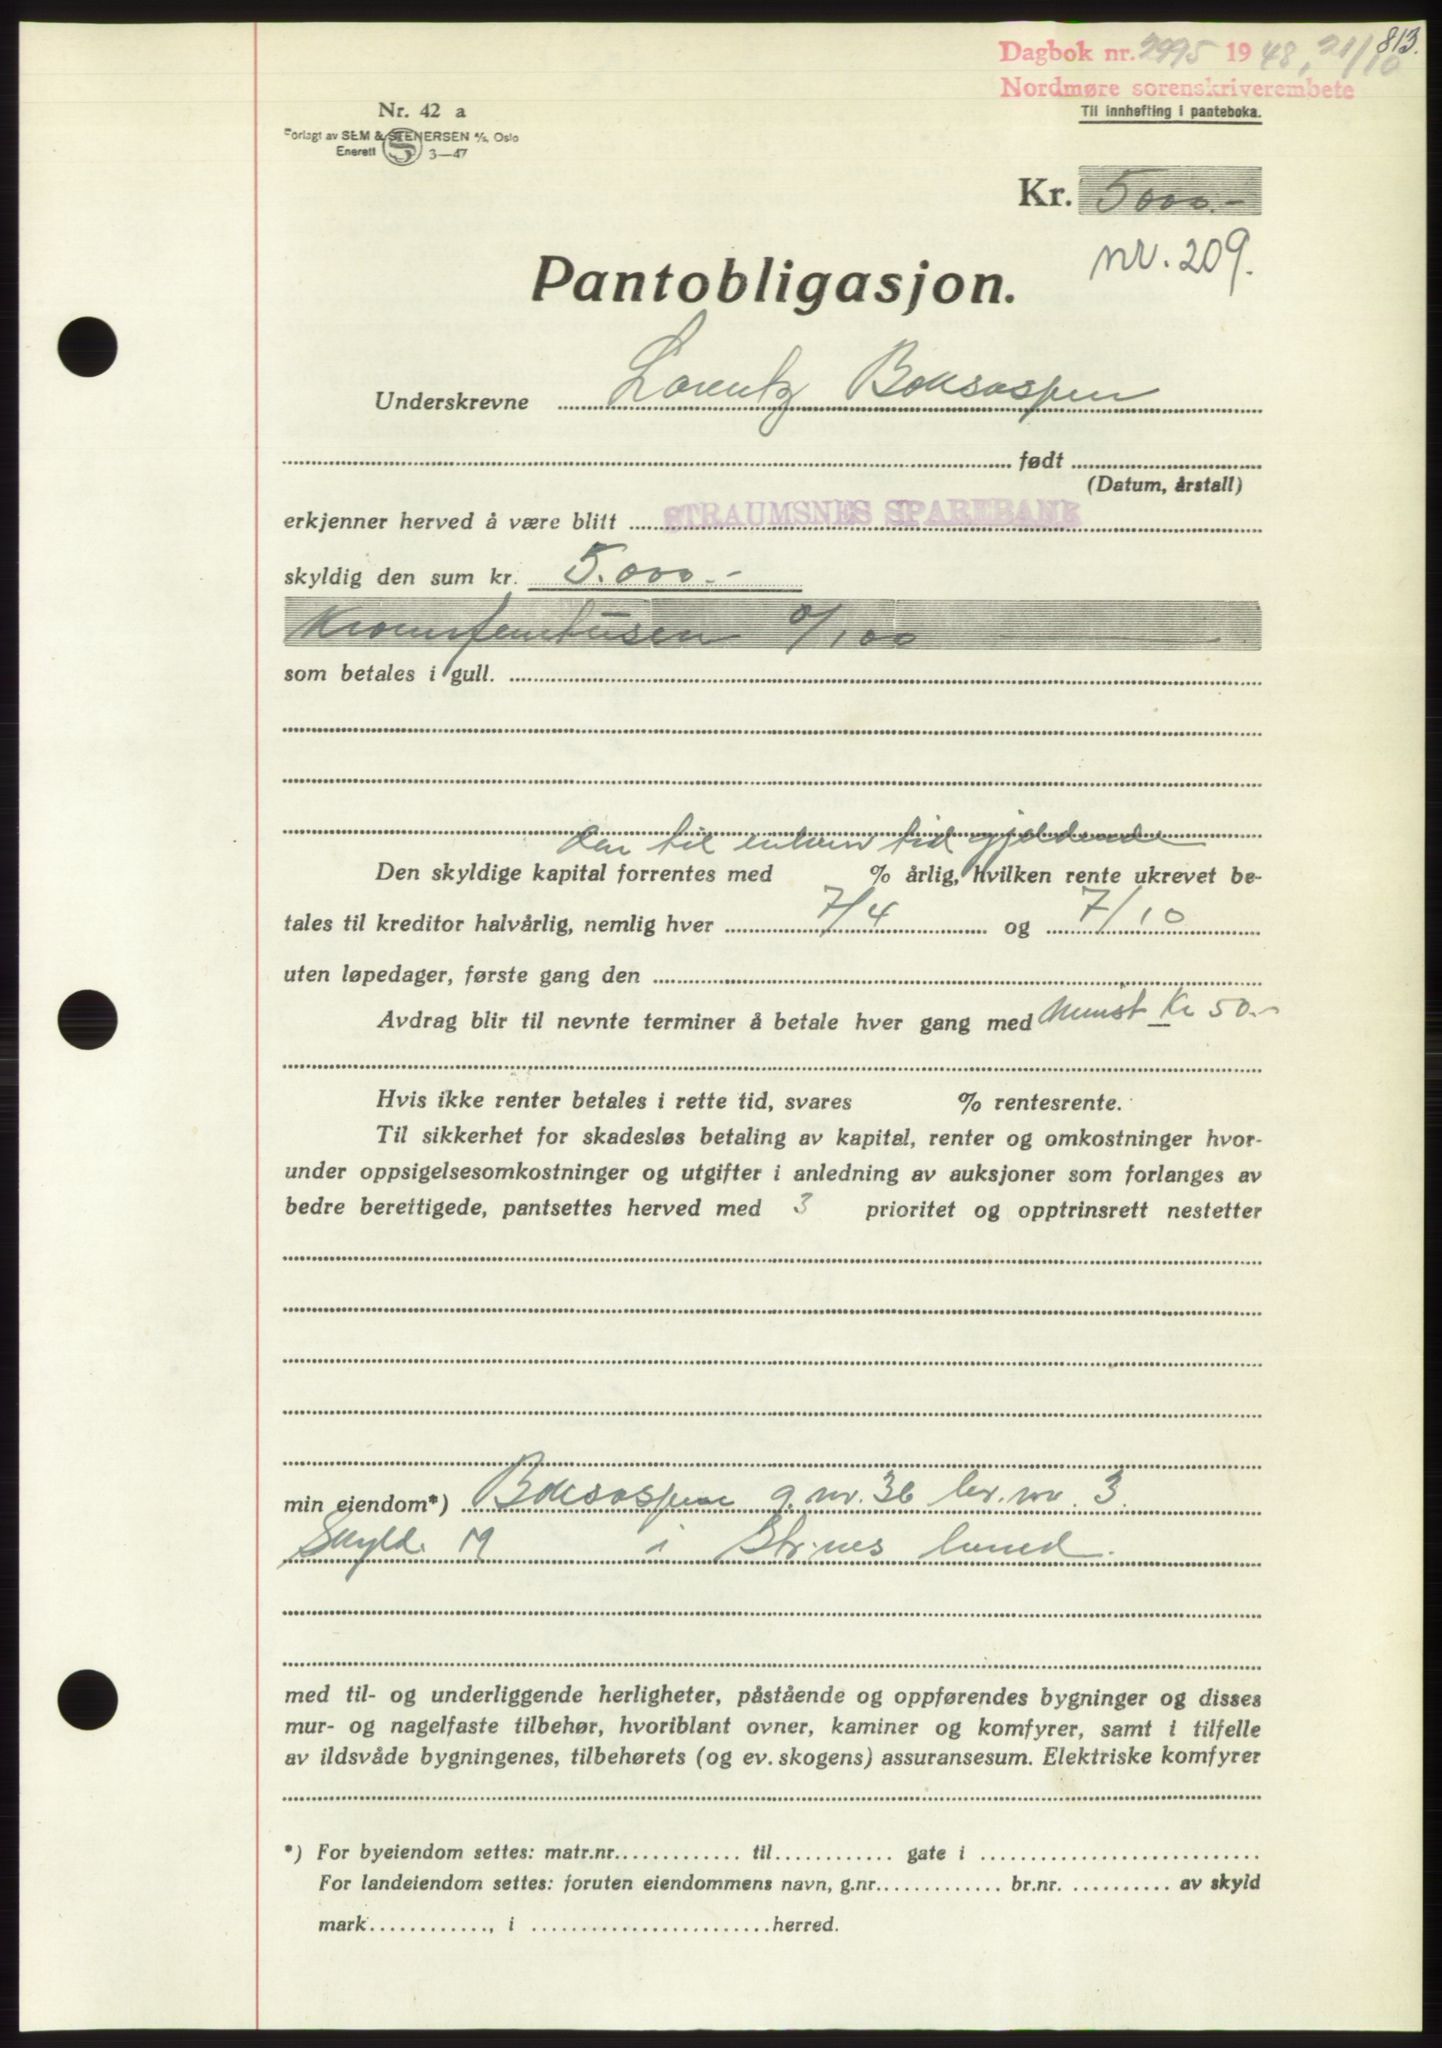 813.
Dagbok nr. 2995 1948, 21/10
Nordmøre sorenskriverembete
Til innhefting i panteboka.
Nr. 42 a
Forlagt av SEM & STENERSEN A/S, Oslo
Enerett S 3—47
Kr. 5000.-
nr. 209.
Pantobligasjon.
Underskrevne Lorentz Boksaspen
født
(Datum, årstall)
erkjenner herved å være blitt STRAUMSNES SPAREBANK
skyldig den sum kr. 5.000.-
Kronerfemtusen 0/100
som betales i gull.
den til enhver tid gjeldende
Den skyldige kapital forrentes med % årlig, hvilken rente ukrevet be-
tales til kreditor halvårlig, nemlig hver 7/4 og 7/10
uten løpedager, første gang den
Avdrag blir til nevnte terminer å betale hver gang med minst Kr 50.-
Hvis ikke renter betales i rette tid, svares % rentesrente.
Til sikkerhet for skadesløs betaling av kapital, renter og omkostninger hvor-
under oppsigelsesomkostninger og utgifter i anledning av auksjoner som forlanges av
bedre berettigede, pantsettes herved med 3 prioritet og opptrinsrett nestetter
min eiendom*) Boksaspen g.nr. 36 br.nr. 3.
Skyld. M i Str.nes herred.
med til- og underliggende herligheter, påstående og oppførendes bygninger og disses
mur- og nagelfaste tilbehør, hvoriblant ovner, kaminer og komfyrer, samt i tilfelle
av ildsvåde bygningenes, tilbehørets (og ev. skogens) assuransesum. Elektriske komfyrer
*) For byeiendom settes: matr.nr. til gate i
For landeiendom settes: foruten eiendommens navn, g.nr. br.nr. av skyld
mark , i herred.